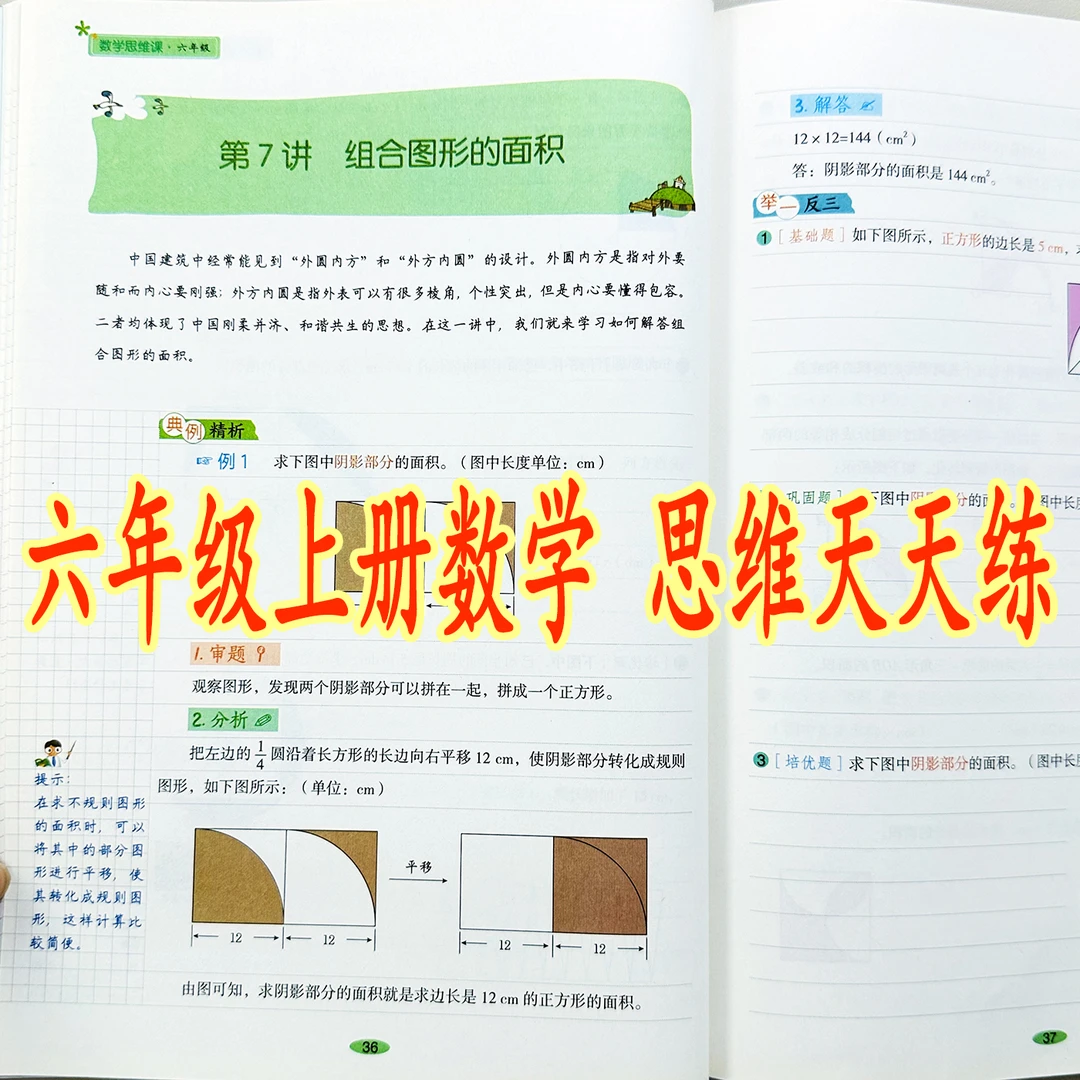 数学思维课·六年级
第7讲 组合图形的面积
中国建筑中经常能见到“外圆内方”和“外方内圆”的设计。外圆内方是指对外要
随和而内心要刚强;外方内圆是指外表可以有很多棱角,个性突出,但是内心要懂得包容。
二者均体现了中国刚柔并济、和谐共生的思想。在这一讲中,我们就来学习如何解答组
合图形的面积。
典例精析
例1 求下图中阴影部分的面积。(图中长度单位:cm)
六年级上册数学 思维天天练
1.审题
观察图形,发现两个阴影部分可以拼在一起,拼成一个正方形。
2.分析
把左边的1/4圆沿着长方形的长边向右平移12 cm,使阴影部分转化成规则
图形,如下图所示:(单位:cm)
提示:
在求不规则图形
的面积时,可以
将其中的部分图
形进行平移,使
其转化成规则图
形,这样计算比
较简便。
平移
12 12 12 12
由图可知,求阴影部分的面积就是求边长是12 cm的正方形的面积。
36
3.解答
12×12=144(cm²)
答:阴影部分的面积是144 cm²。
举一反三
1 [基础题] 如下图所示,正方形的边长是5 cm,
巩固题] 下图中阴 分的面 图中长
3 [培优题] 求下图中阴影部分的面积。(图中长
37